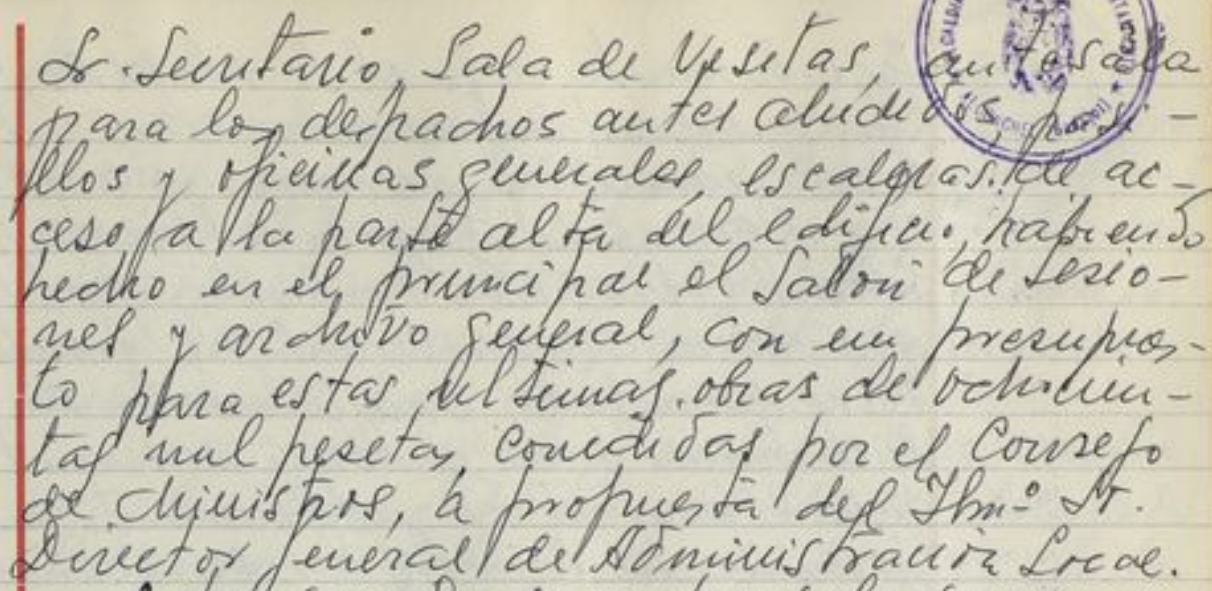 Sr. Secretario, Sala de Visitas, antesala
para los despachos antes aludidos, pasi-
llos y oficinas generales, escaleras de ac-
ceso a la parte alta del edificio, habiendo
hecho en el principal el Salón de Sesio-
nes y archivo general, con un presupues-
to para estas ultimas obras de ochocien-
tas mil pesetas, concedidas por el Consejo
de Ministros, a propuesta del Ilmº Sr.
Director General de Administración Local.